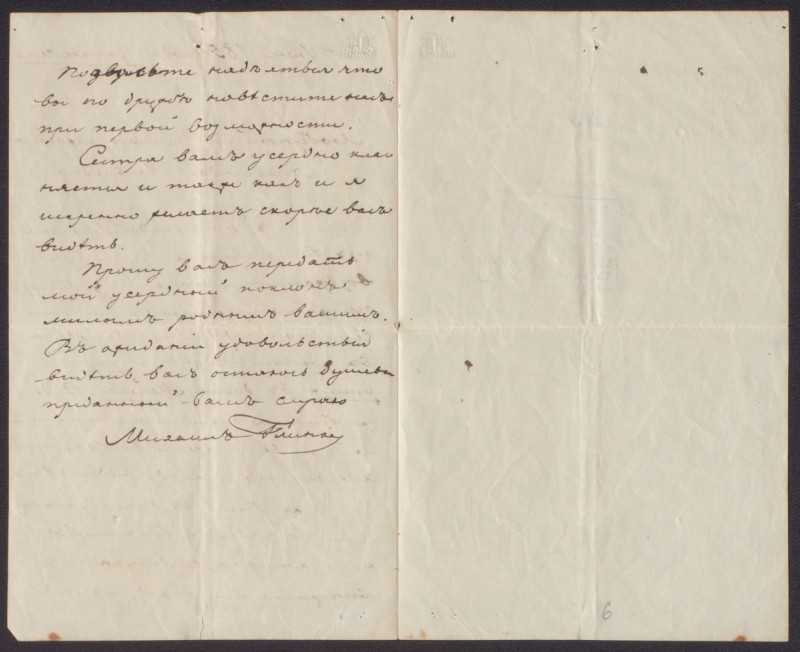 Позвольте надѣяться что
вы по дружбѣ навѣстите насъ
при первой возможности.
Сестра вамъ усердно кла-
няется и также какъ и я
искренно желаетъ скорѣе васъ
видѣть.
Прошу васъ передать
мой усердный поклонъ
милымъ роднымъ вашимъ.
Въ ожиданіи удовольствія
видѣть васъ остаюсь душевно
преданный вамъ слугою
Михаилъ Глинка
6